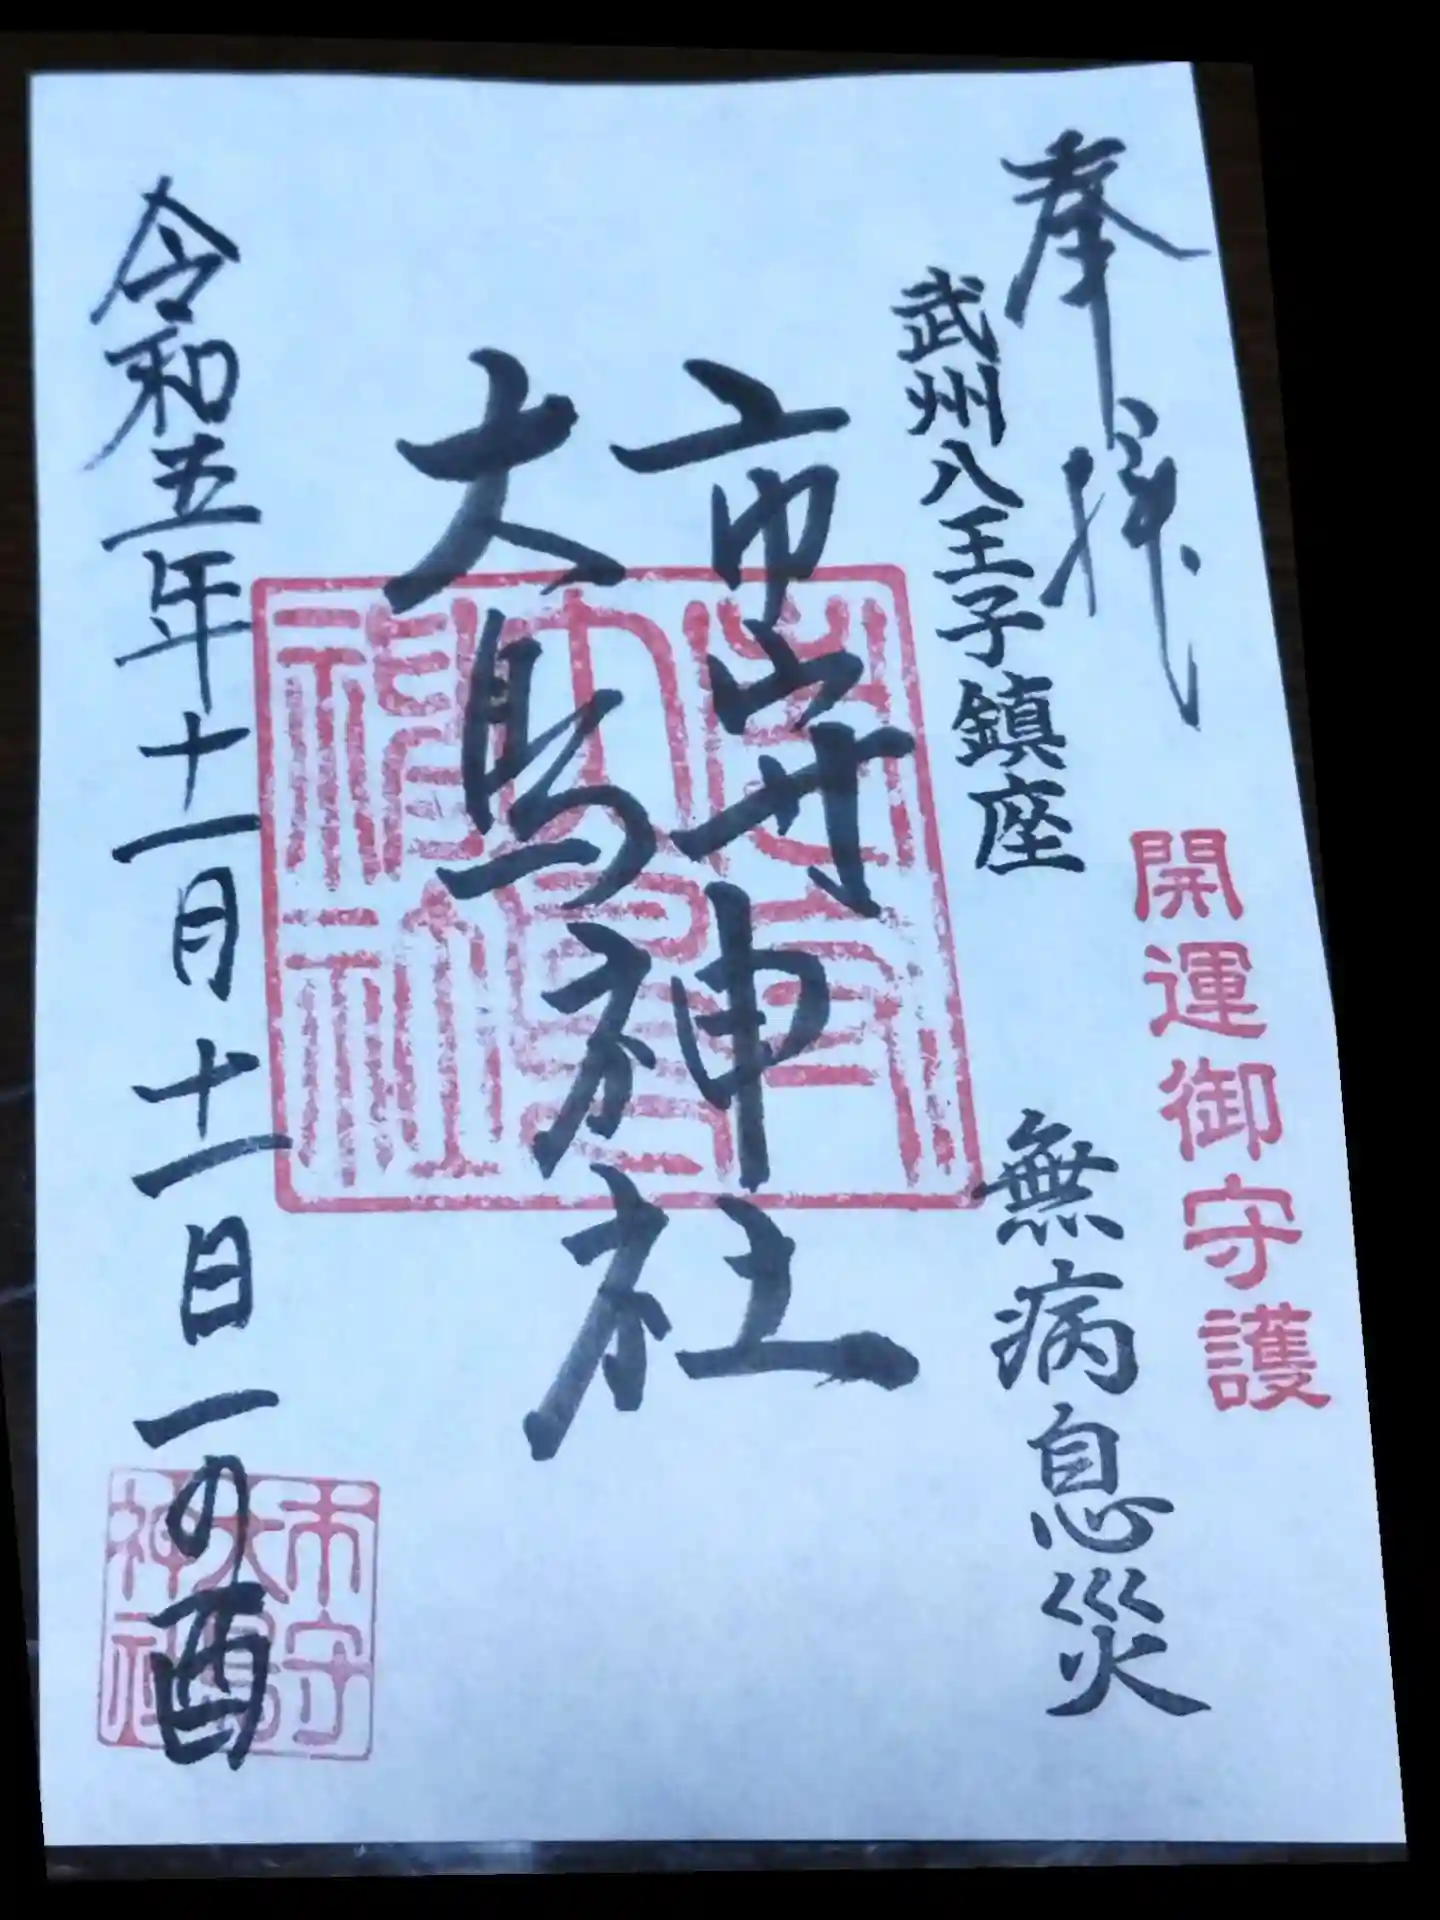 奉拝
開運御守護
武州八王子鎮座
無病息災
市守
大鳥
神社
市守
大鳥
神社
令和五年十一月十一日一の酉
市守
大鳥
神社